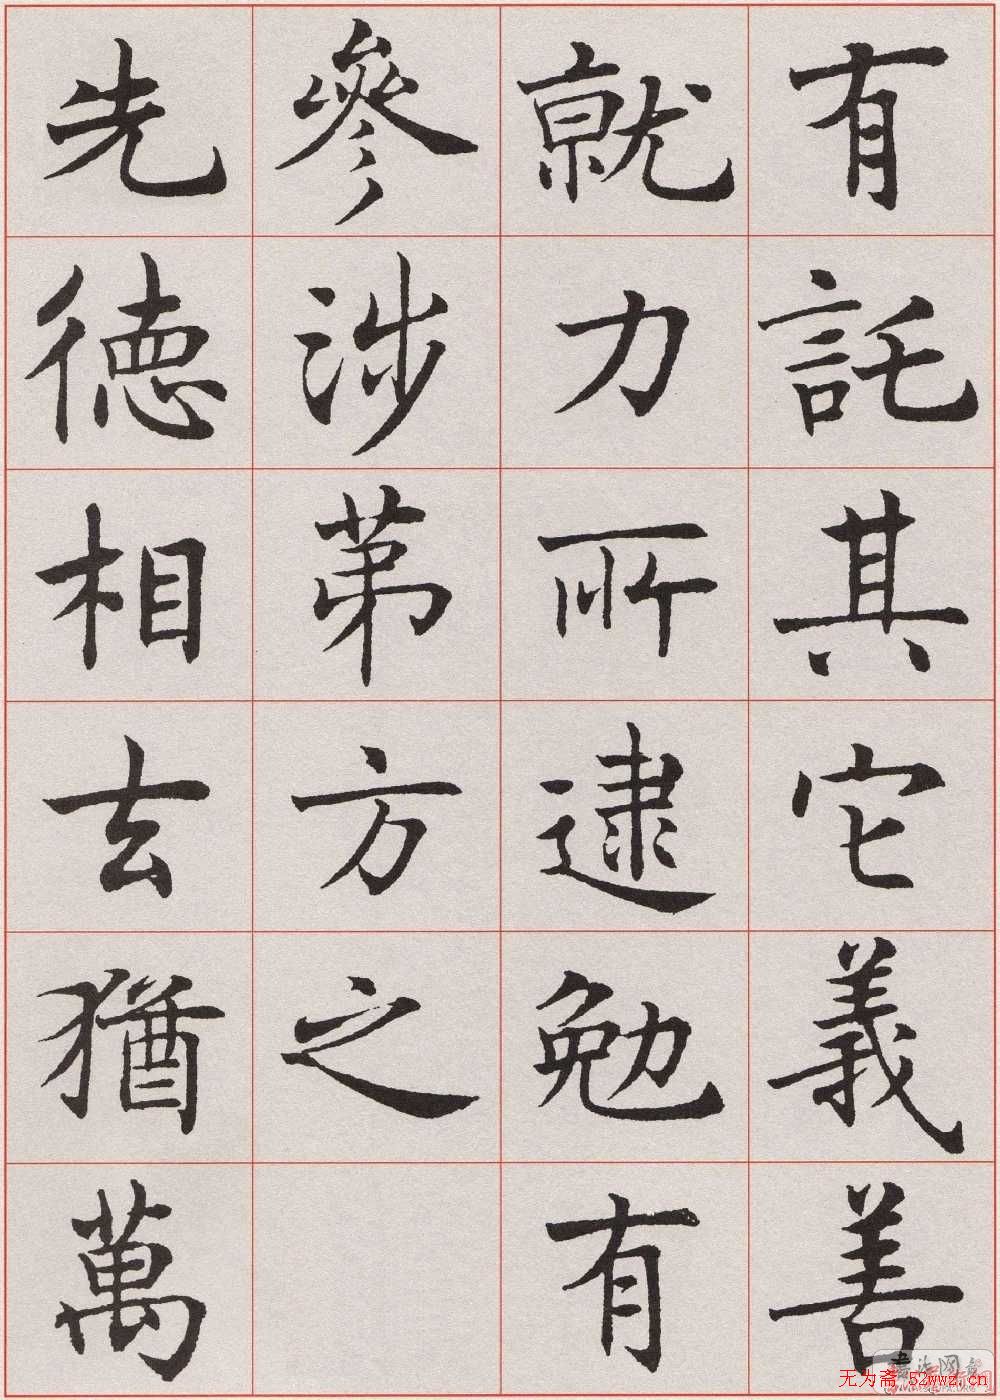 有託其它義善
就力所逮勉有
參涉苐方之
先德相去猶萬
无为斋 52wwz.cn